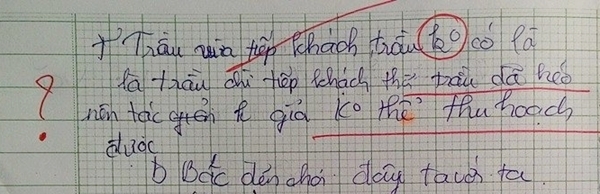 + Trầu vừa tiếp khách trầu ko có là
là trầu chỉ tiếp khách thế trầu đã héo
?
nên tác giả ko thể thu hoạch
được
b) Bác đến chơi đây ta với ta